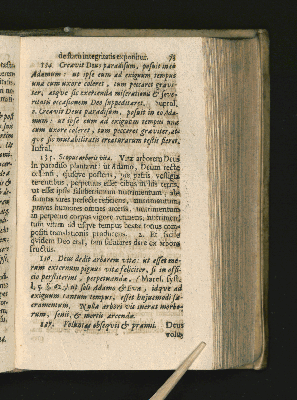 de statu integritatis exponitur. 75
134. Creavit Deus paradisum, posuit in eo
Adamum: ut ipse eum ad exiguum tempus
una cum uxore coleret, tum peccaret graviter,
atque sic exercenda miserationis & severitatis
occasionem Deo suppeditaret. Supral.
2. Creavit Deus paradisum, posuit in eo Adamum:
ut ipse eum ad exiguum tempus una
cum uxore coleret, tum peccaret graviter, atque
sic mutabilitatis creaturarum testis fieret.
Infral.
135. Scopus arboris vitæ. Vitæ arborem Deus
in paradiso plantavit: ut Adamo, Deum recte
colenti, ejusque posteris, patris vestigia
terentibus, perpetuus esset cibus in his terris,
ut esset ipsis salubre nutrimentum,
vires perfecte reficiens,
pravos humores omnes arcens,
in perpetuo corpus vigore retinens,
tum vitam ad usque tempus beatæ
translationis producens. 2. Et
quidem Deo erat, tam salutares dare ex arbore
fructus.
136. Deus dedit arborem vitæ: ut esset merum
externum pignus vitæ feliciter, si in officio
perstiterint, perpetuandæ. (Maresi. Syst.
l. 5. §. 62.) ut soli Adamo & Evæ, idque ad
exiguum tantum tempus, esset hujusmodi sacramentum.
Nulla arbori vis inerat morborum,
senii, & mortis arcendæ.
137. obsequii & præmii. Deus